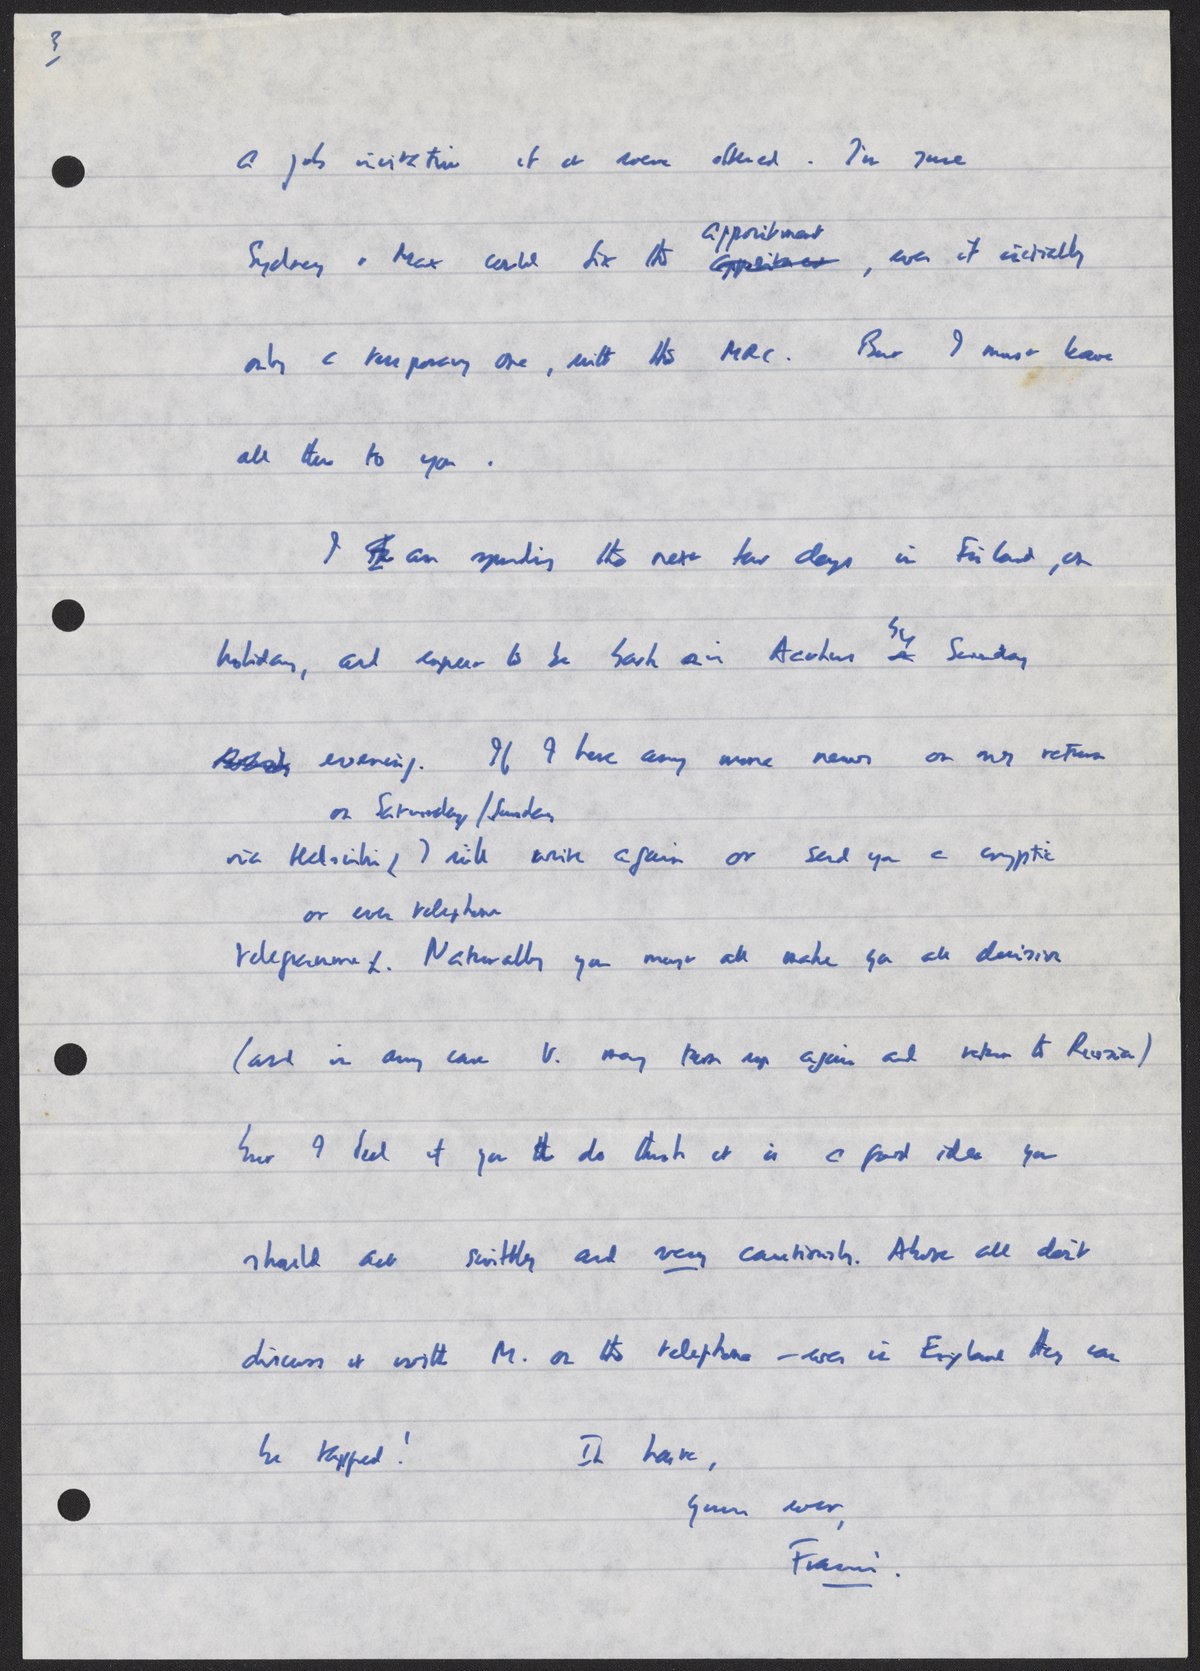 3
a job invitation if it were offered. I'm sure
appointment
Sydney + Max could fix the appointment, even if initially
only a temporary one, with the MRC. But I must leave
all this to you.
I am spending the next few days in Finland, on
by
holiday, and expect to be back in Aarhus Sunday
evening. If I have any more news on my return
on Saturday/Sunday
via Helsinki, I will write again or send you a cryptic
or even telephone
telegramme. Naturally you must all make the decision
(and in any case V. may turn up again and return to Russia)
but I feel if you do think it is a good idea you
should act swiftly and very cautiously. Above all don't
discuss it with M. on the telephone – even in England they can
be tapped! In haste,
yours ever,
Francis.